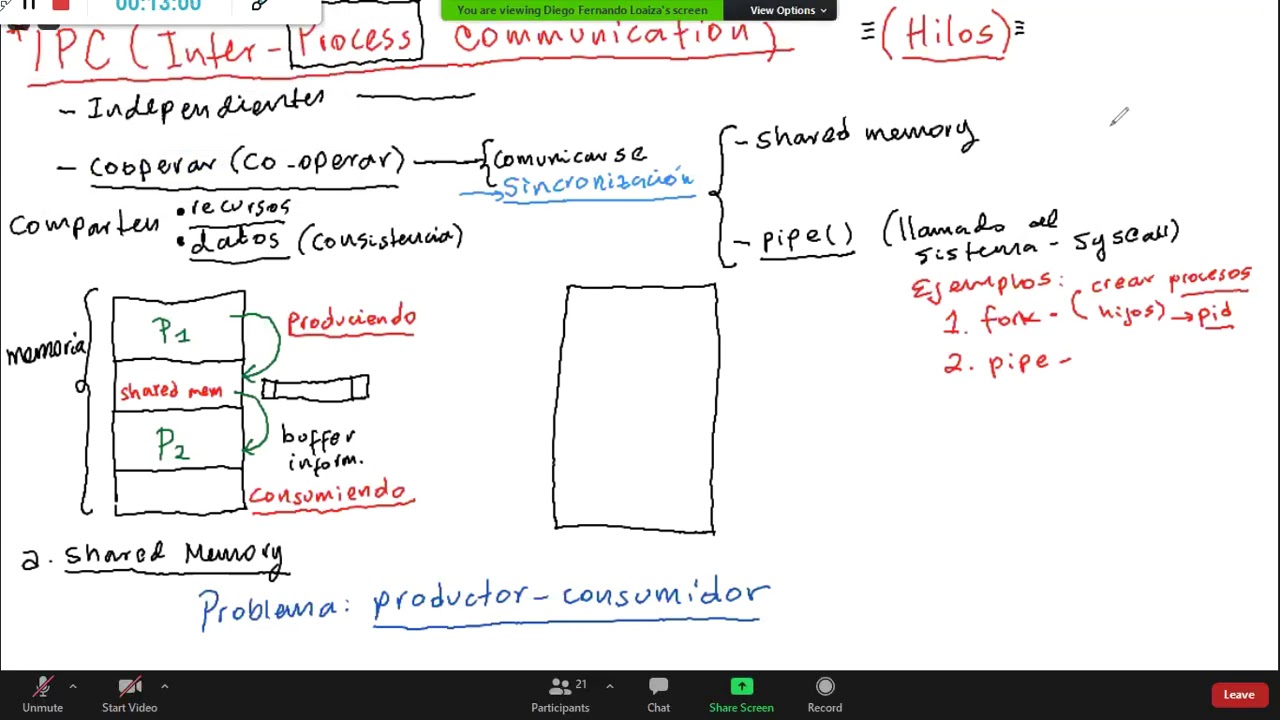 00:13:00
You are viewing Diego Fernando Loaiza's screen
View Options
* IPC (Inter-Process Communication)
≡(Hilos)≡
- Independientes
- cooperar (co-operar)
comunicarse
sincronización
Comparten • recursos
• datos (consistencia)
- shared memory
- pipe() (llamado al
sistema - syscall)
Ejemplos:
1. fork - (crear procesos
hijos) → pid
2. pipe -
memoria
P1
produciendo
shared mem
P2
buffer
inform.
consumiendo
a. shared Memory
Problema: productor-consumidor
Unmute
Start Video
21
Participants
Chat
Share Screen
Record
Leave